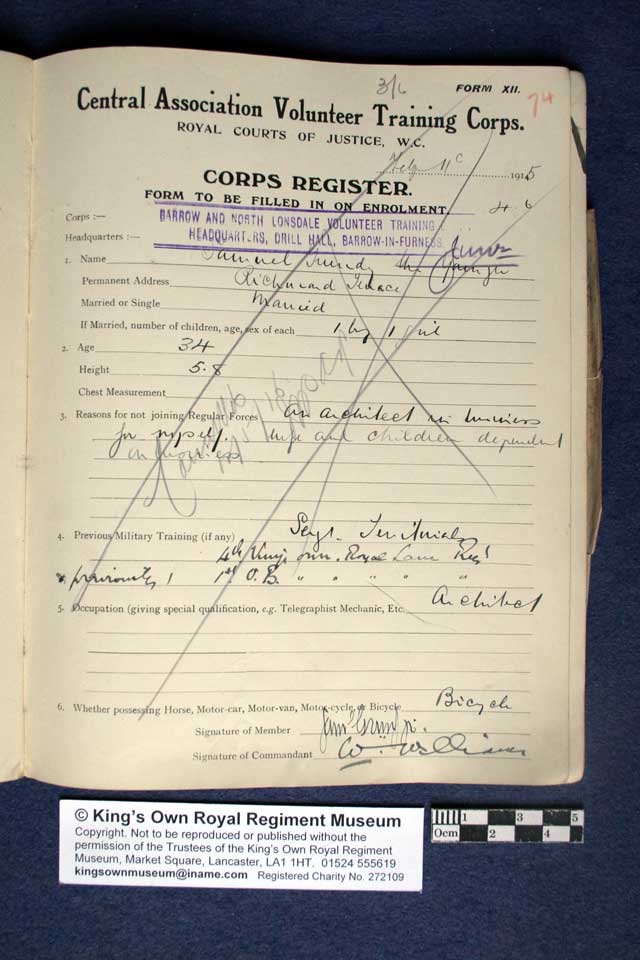 3/6
FORM XII.
74
Central Association Volunteer Training Corps.
ROYAL COURTS OF JUSTICE, W.C.
11 1915
CORPS REGISTER.
FORM TO BE FILLED IN ON ENROLMENT. 4 6
Corps :—
BARROW AND NORTH LONSDALE VOLUNTEER TRAINING
Headquarters :—
HEADQUARTERS, DRILL HALL, BARROW-IN-FURNESS
1. Name Samuel the younger
Permanent Address Richmond Terrace
Married or Single Married
If Married, number of children, age, sex of each 1 boy 1 girl
2. Age 34
Height 5.8
Chest Measurement
3. Reasons for not joining Regular Forces An architect in business
for myself. Wife and children dependent
on
4. Previous Military Training (if any) Sergt. Territorials
4th Kings own. Royal Lanc Regt
previously 1st V. B. " " " " "
5. Occupation (giving special qualification, e.g. Telegraphist Mechanic, Etc. Architect
6. Whether possessing Horse, Motor-car, Motor-van, Motor-cycle, or Bicycle Bicycle
Signature of Member
Signature of Commandant W. Williams
© King's Own Royal Regiment Museum
Copyright. Not to be reproduced or published without the
permission of the Trustees of the King's Own Royal Regiment
Museum, Market Square, Lancaster, LA1 1HT. 01524 555619
kingsownmuseum@iname.com Registered Charity No. 272109
1 3 5
0cm 2 4